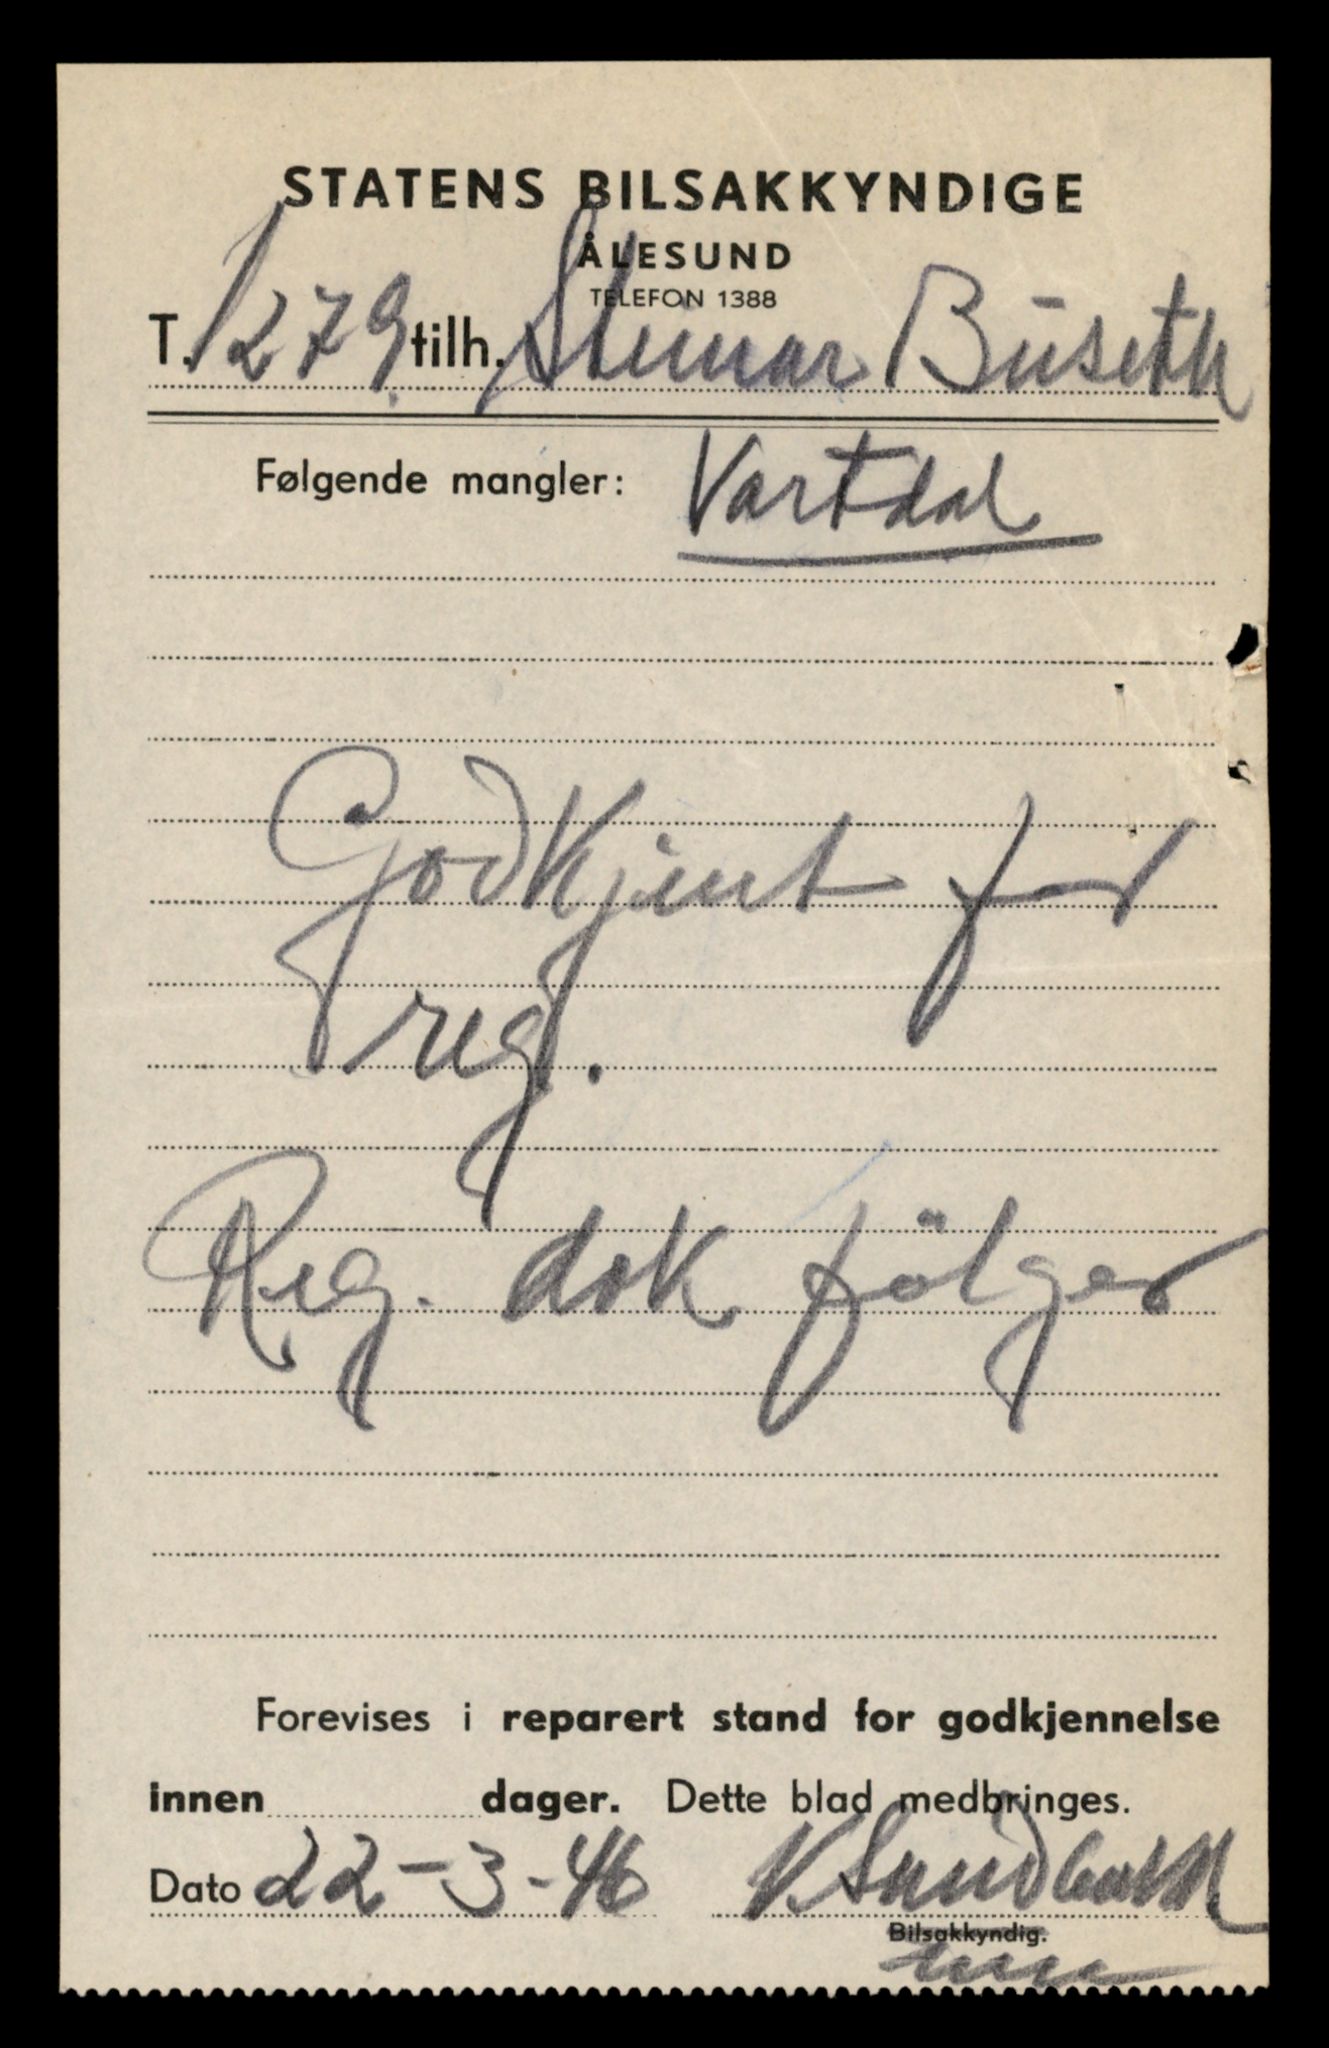 STATENS BILSAKKYNDIGE
ÅLESUND
TELEFON 1388
T. 1279 tilh. Steinar Buseth
Følgende mangler: Vartdal
Godkjent for
reg.
Reg. dok følger
Forevises i reparert stand for godkjennelse
innen dager. Dette blad medbringes.
Dato 22-3-46
Bilsakkyndig.